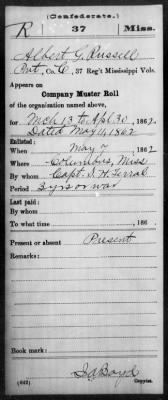 (Confederate.)
R 37 Miss.
Albert G. Russell
Pvt, Co. C, 37 Reg't Mississippi Vols.
Appears on
Company Muster Roll
of the organization named above,
for Mch 13 to Apl 30, 1862.
Dated May 14, 1862
Enlisted:
When May 7, 1862
Where Columbus, Miss
By whom Capt. S. H. Terral
Period 3 yrs or war
Last paid:
By whom
To what time , 186 .
Present or absent Present
Remarks:
Boyd
(642) Copyist.